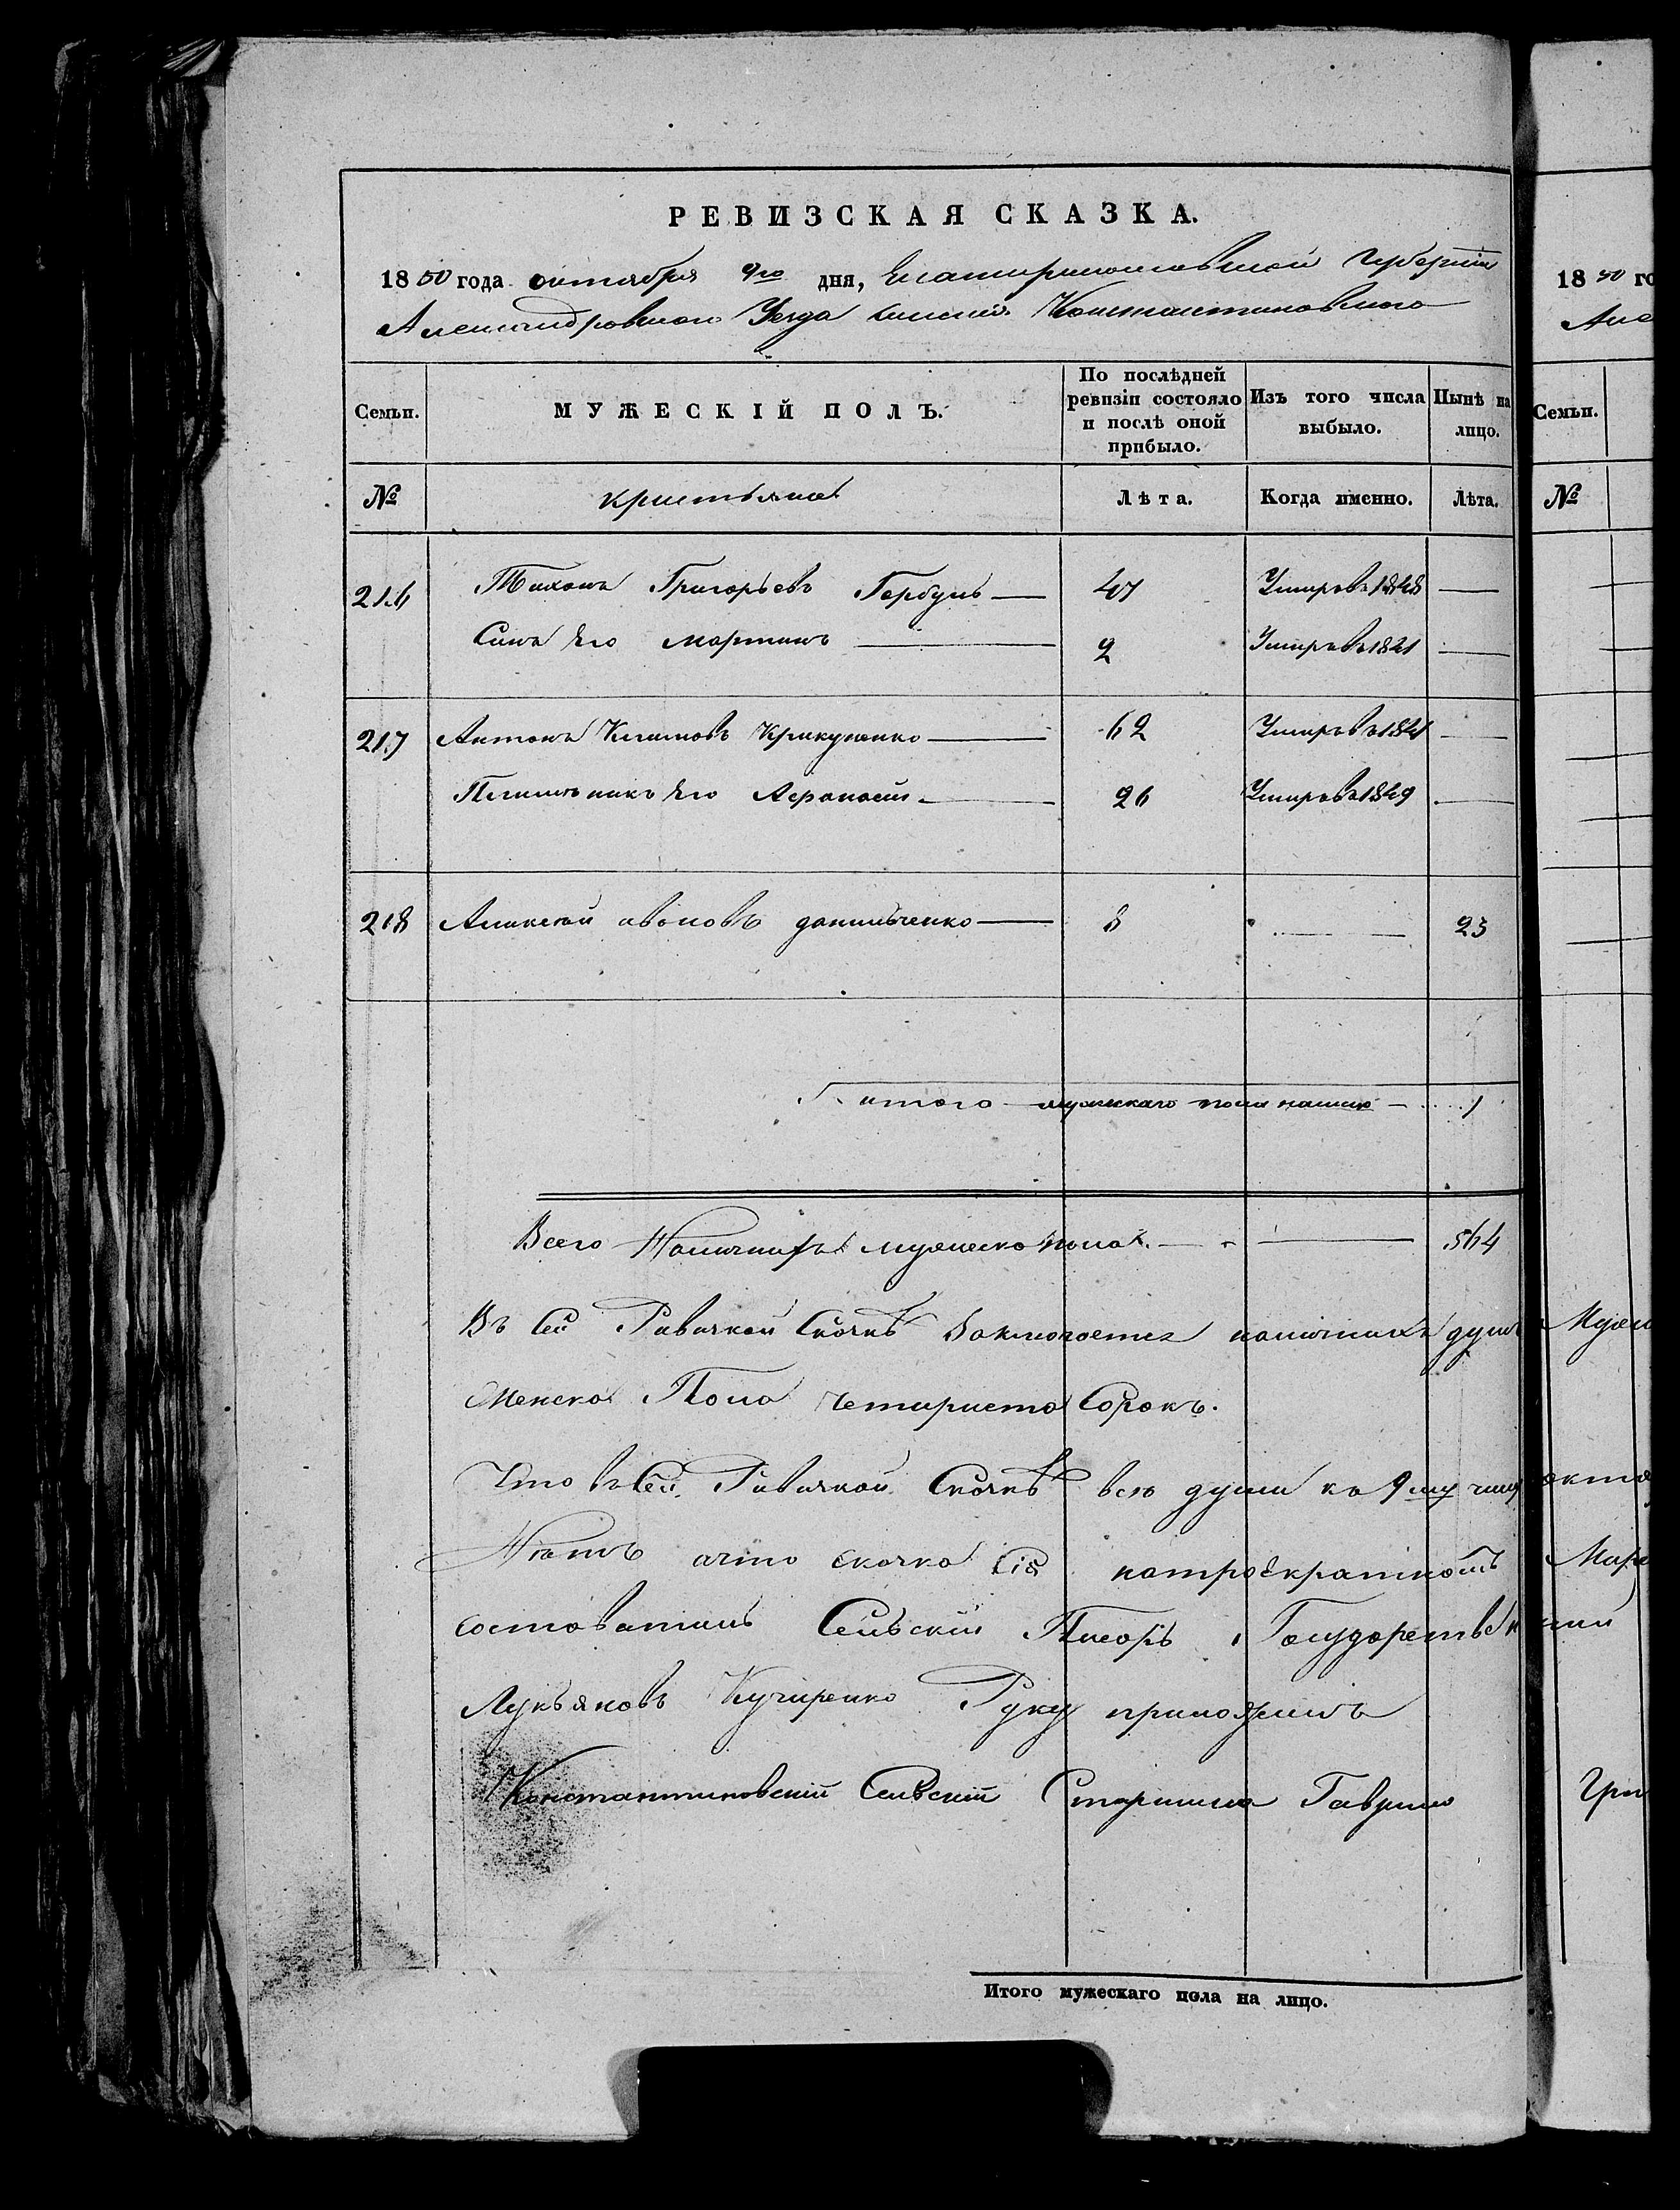 РЕВИЗСКАЯ СКАЗКА.
1850 года октября 9го дня, Екатеринославской Губернии
Александровского Уезда Селения Константиновского
Семьи. МУЖЕСКІЙ ПОЛЪ. По послѣдней ревизіи состояло и послѣ оной прибыло. Изъ того числа выбыло. Нынѣ на лицо.
№ кристьяне Лѣта. Когда именно. Лѣта.
216 Тихонъ Григорьевъ Горбунь 47 Умиръ въ 1848
Синъ Его мартинъ 2 Умиръ въ 1841
217 Антонъ Климовъ Крикуненко 62 Умиръ въ 1841
Племьникъ Его Афонасий 26 Умиръ въ 1849
218 Аликсей ивоновъ донильченко 8 23
итого мужескаго пола налицо 1
Всего Наличнихъ мужеско пола 564
Въ Сей Ривизкой Сказкѣ Заключоетца наличнихъ душъ
Женско Пола четириста Сорокъ.
Что въ Сей Ривизкой Сказкѣ всѣ души ко 9му числу
Нѣтъ ачто сказка Сія потроекратномъ
состовителъ Сельскій Писоръ Государственний
Лукъяновъ Кучиренко Руку приложилъ
Константиновскій Сельскій Старшина Гаврило
Итого мужескаго пола на лицо.
1850 го
Але
Семьи.
№